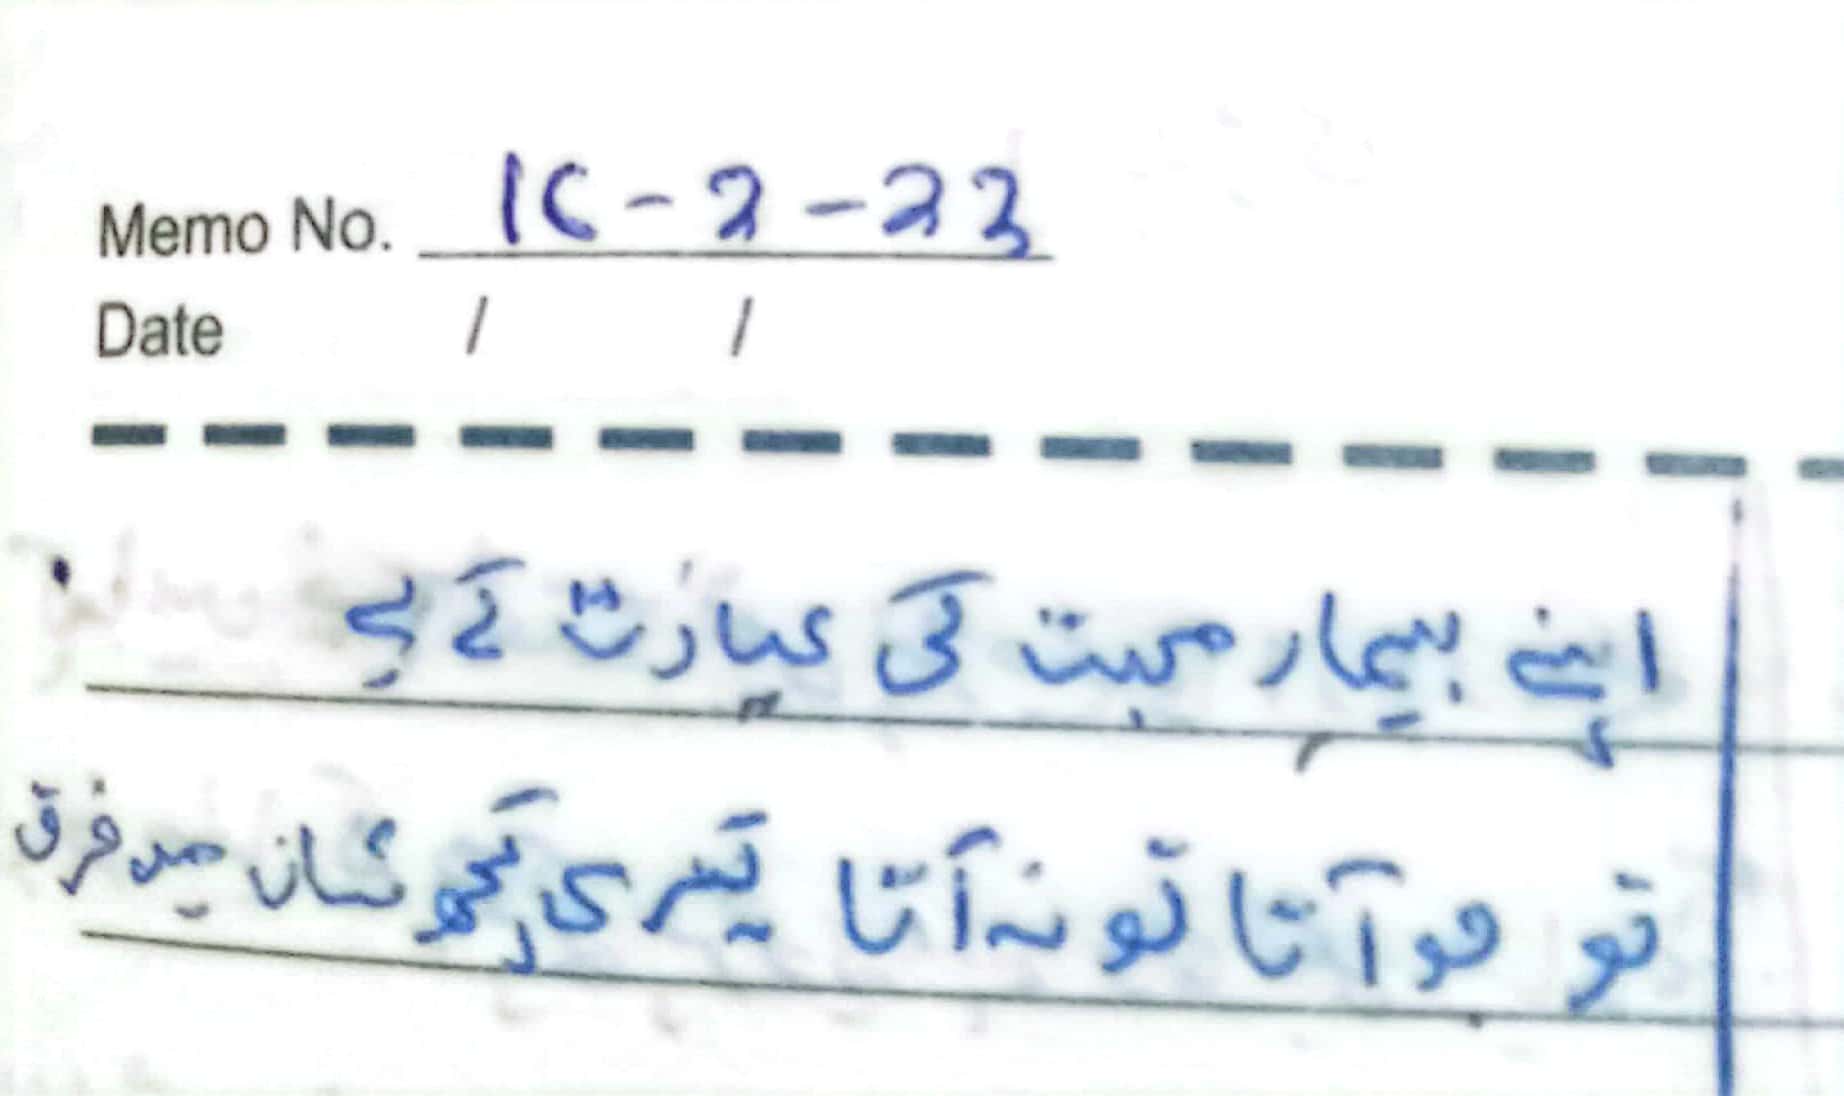 Memo No. 16-2-23
Date / /
اپنے بیمار محبت کی عیادت کے لیے
تو ہو آتا تو نہ آتا تیری کچھ شان میں فرق